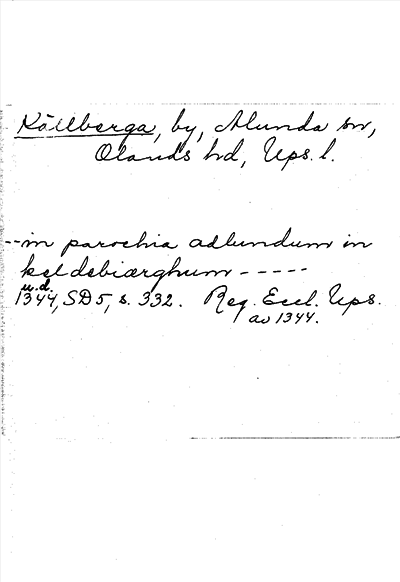 Källberga, by, Alunda sn,
Olands hd, Ups. l.
--in parochia adlundum in
keldebiærghum -----
u.d.
1344, SD 5, s. 332. Reg. Eccl. Ups.
av 1344.